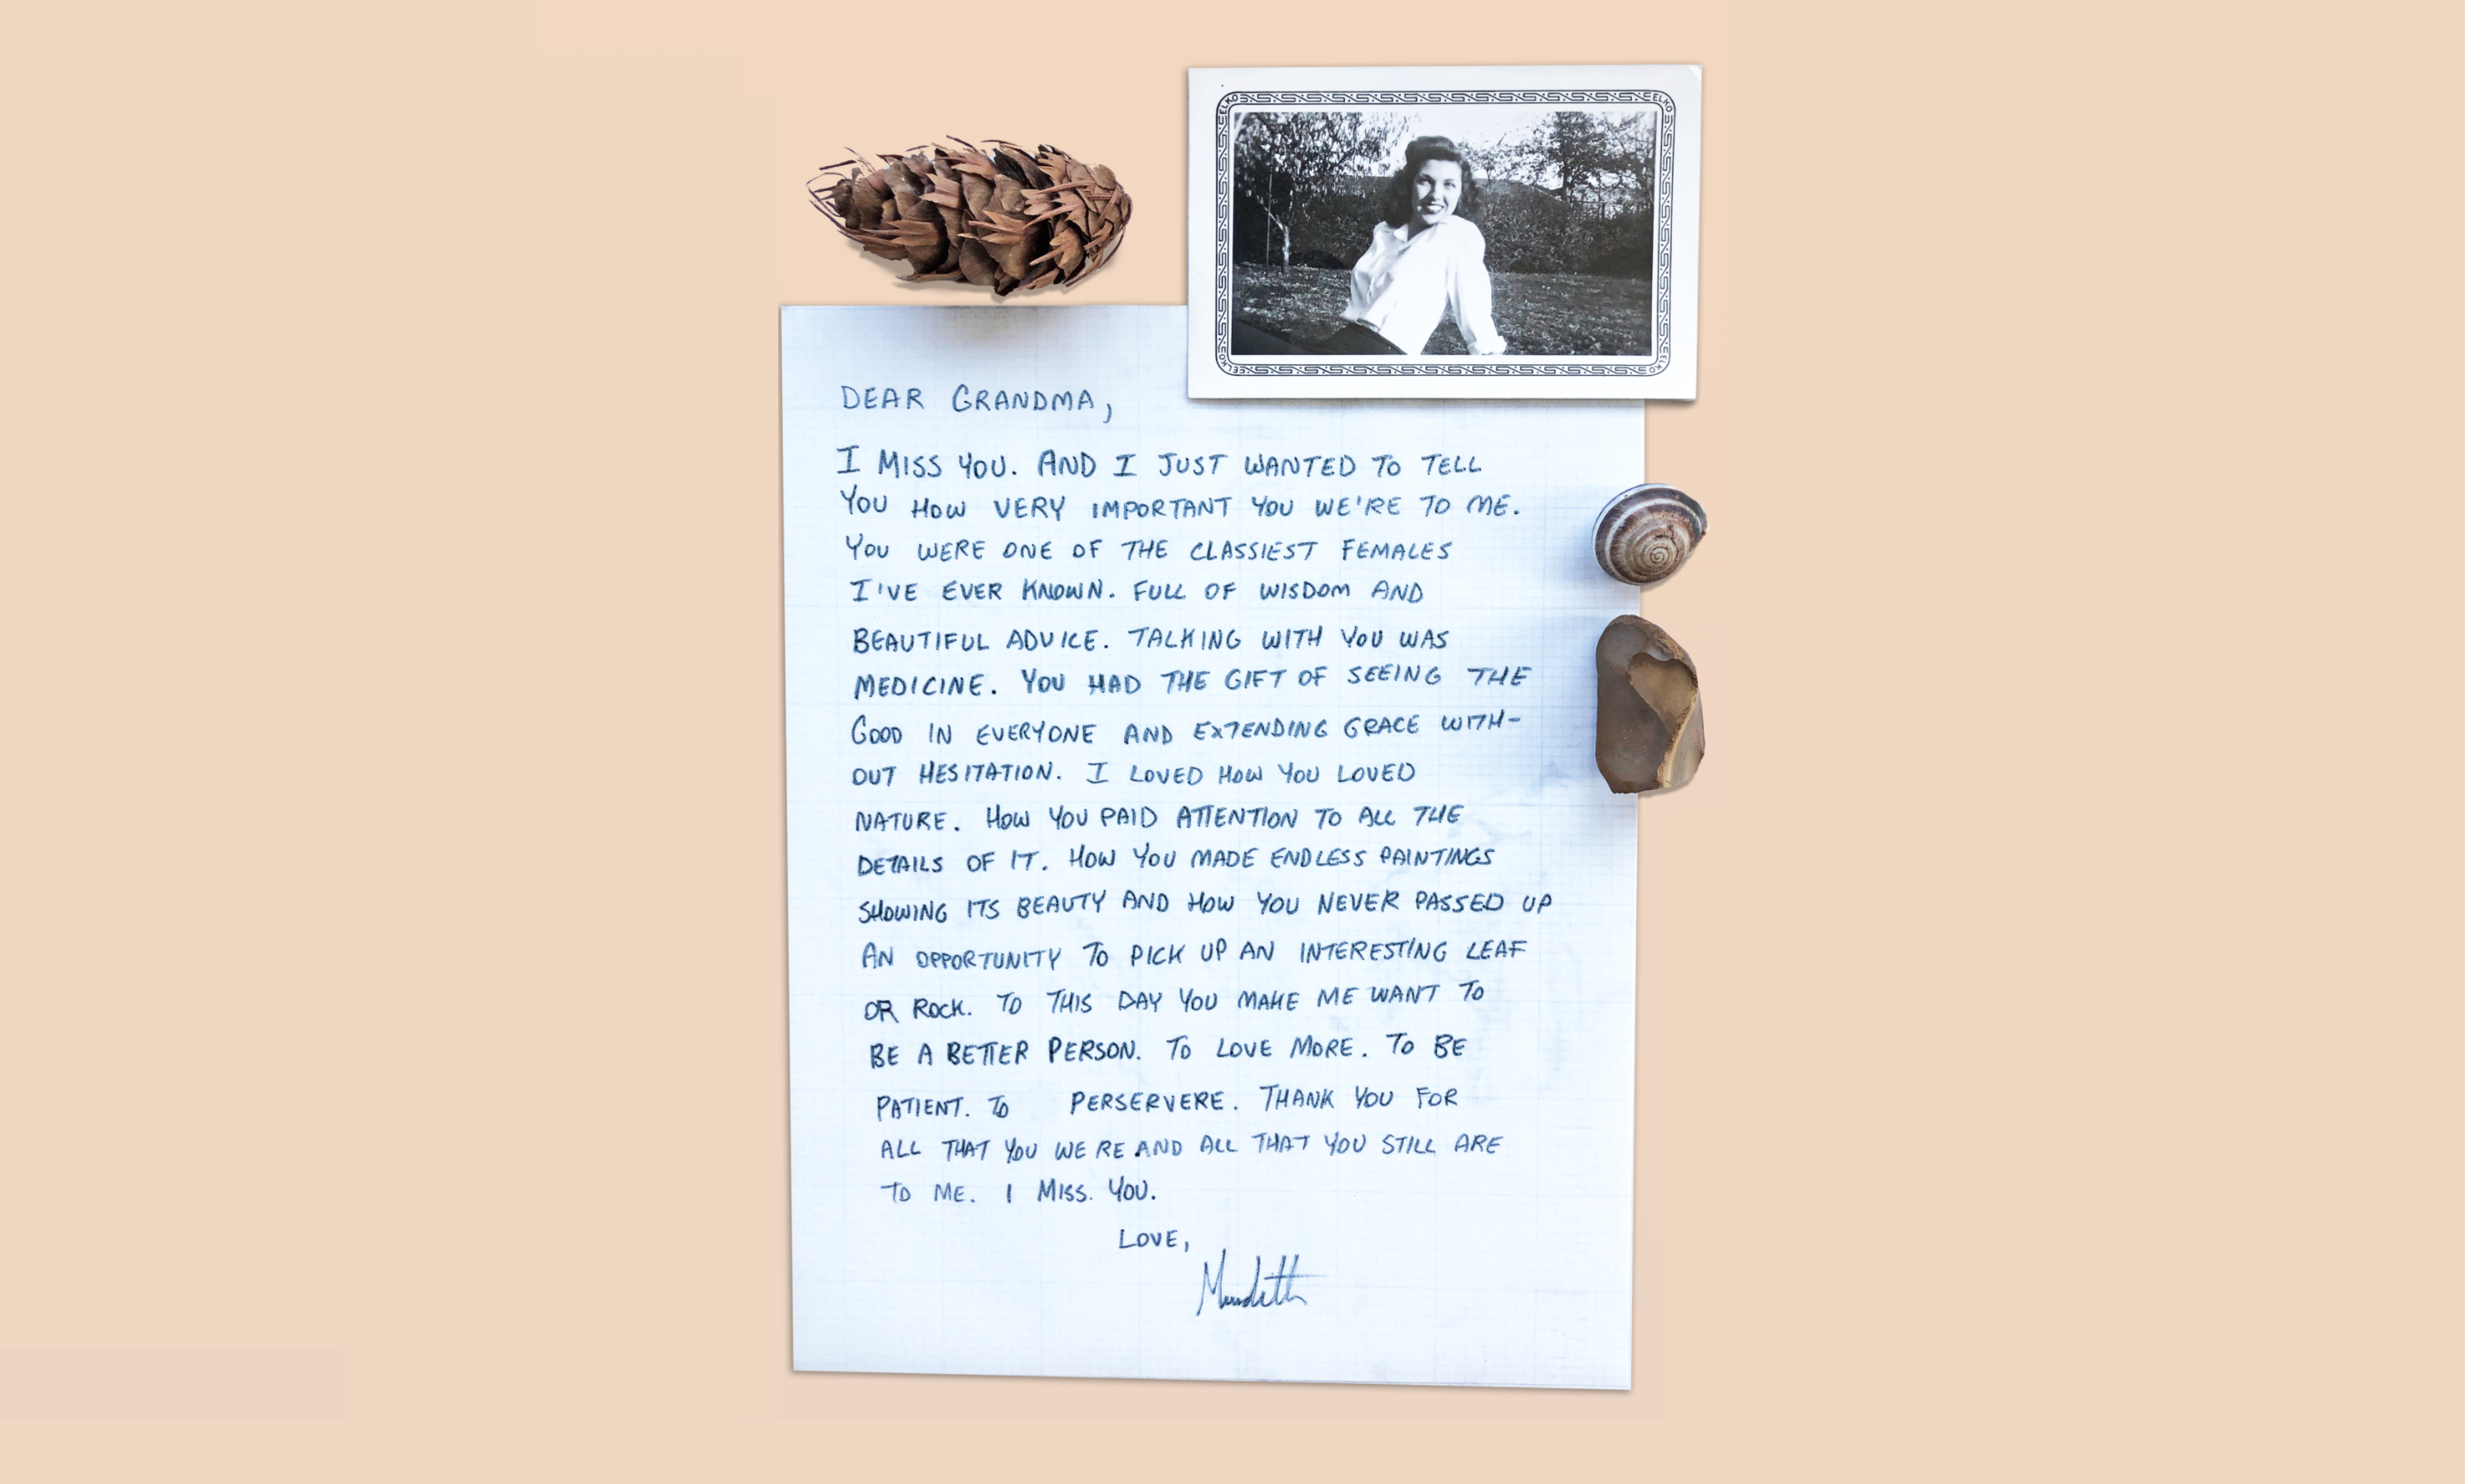 ELKO ELKO
ELKO ELKO
DEAR GRANDMA,
I MISS YOU. AND I JUST WANTED TO TELL
YOU HOW VERY IMPORTANT YOU WE'RE TO ME.
YOU WERE ONE OF THE CLASSIEST FEMALES
I'VE EVER KNOWN. FULL OF WISDOM AND
BEAUTIFUL ADVICE. TALKING WITH YOU WAS
MEDICINE. YOU HAD THE GIFT OF SEEING THE
GOOD IN EVERYONE AND EXTENDING GRACE WITH-
OUT HESITATION. I LOVED HOW YOU LOVED
NATURE. HOW YOU PAID ATTENTION TO ALL THE
DETAILS OF IT. HOW YOU MADE ENDLESS PAINTINGS
SHOWING ITS BEAUTY AND HOW YOU NEVER PASSED UP
AN OPPORTUNITY TO PICK UP AN INTERESTING LEAF
OR ROCK. TO THIS DAY YOU MAKE ME WANT TO
BE A BETTER PERSON. TO LOVE MORE. TO BE
PATIENT. TO PERSERVERE. THANK YOU FOR
ALL THAT YOU WERE AND ALL THAT YOU STILL ARE
TO ME. I MISS. YOU.
LOVE,
Meredith